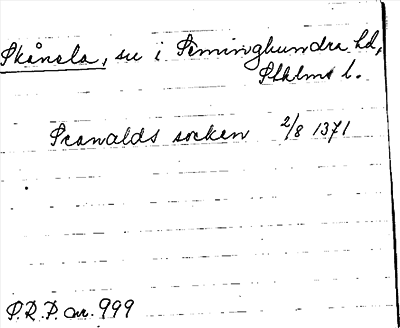 Skånela, sn i Seminghundra hd,
Sthlms l.
Scanalds socken 2/8 1371
P.R.P. nr. 999